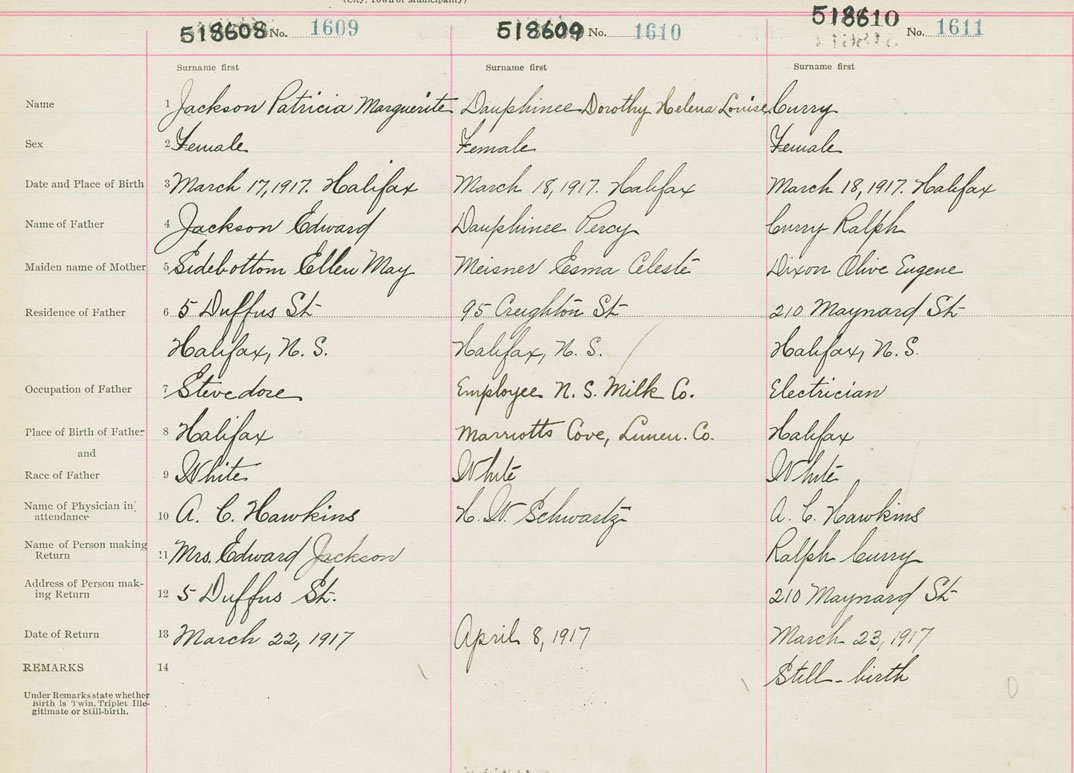 (City, Town or Municipality)
518608 No. 1609 518609 No. 1610 518610 No. 1611
Surname first Surname first Surname first
Name 1 Jackson Patricia Marguerite Dauphinee Dorothy Helena Louise Curry
Sex 2 Female Female Female
Date and Place of Birth 3 March 17, 1917. Halifax March 18, 1917. Halifax March 18, 1917. Halifax
Name of Father 4 Jackson Edward Dauphinee Percy Curry Ralph
Maiden name of Mother 5 Sidebottom Ellen May Meisner Esma Celeste Dixon Olive Eugene
Residence of Father 6 5 Duffus St 95 Creighton St 210 Maynard St
Halifax, N. S. Halifax, N. S. Halifax, N. S.
Occupation of Father 7 Stevedore Employee N. S. Milk Co. Electrician
Place of Birth of Father 8 Halifax Marriotts Cove, Lunen. Co. Halifax
and
Race of Father 9 White White White
Name of Physician in attendance 10 A. C. Hawkins H. W. Schwartz A. C. Hawkins
Name of Person making Return 11 Mrs. Edward Jackson Ralph Curry
Address of Person mak-ing Return 12 5 Duffus St. 210 Maynard St
Date of Return 13 March 22, 1917 April 8, 1917 March 23, 1917
REMARKS 14 Still-birth
Under Remarks state whether
Birth is Twin, Triplet Ille-
gitimate or Still-birth.